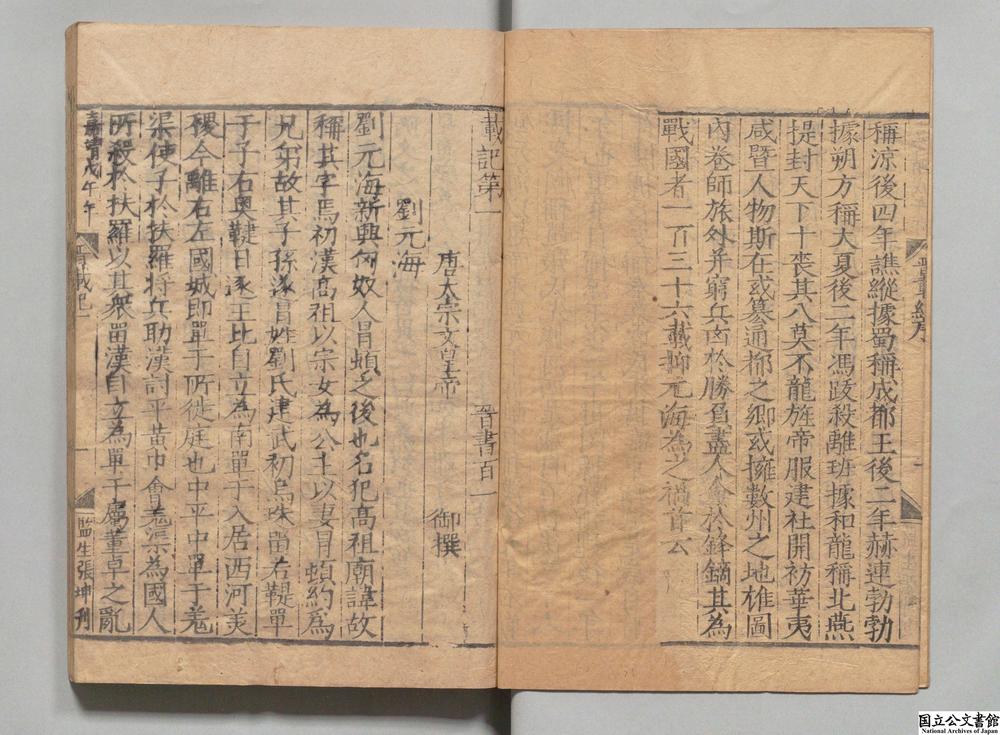 稱凉後四年譙縱據蜀稱成都王後二年赫連勃勃
據朔方稱大夏後二年馮跋殺離班據和龍稱北燕
提封天下十喪其八莫不龍旌帝服建社開祊華夷
咸暨人物斯在或篡通都之鄉或擁數州之地雄圖
內卷師旅外并窮兵凶於勝負盡人命於鋒鏑其為
戰國者一百三十六載抑元海為之禍首云
載記第一
晉書百一
唐太宗文皇帝
御撰
劉元海
劉元海新興匈奴人冒頓之後也名犯高祖廟諱故
稱其字焉初漢高祖以宗女為公主以妻冒頓約為
兄弟故其子孫遂冒姓劉氏建武初烏珠留若鞮單
于子右奧鞬日逐王比自立為南單于入居西河美
稷今離石左國城即單于所徙庭也中平中單于羌
渠使子於扶羅將兵助漢討平黃巾會羌渠為國人
所殺於扶羅以其衆留漢自立為單于屬董卓之亂
嘉靖戊午年
晉載記一
一
監生張坤刊
国立公文書館
National Archives of Japan